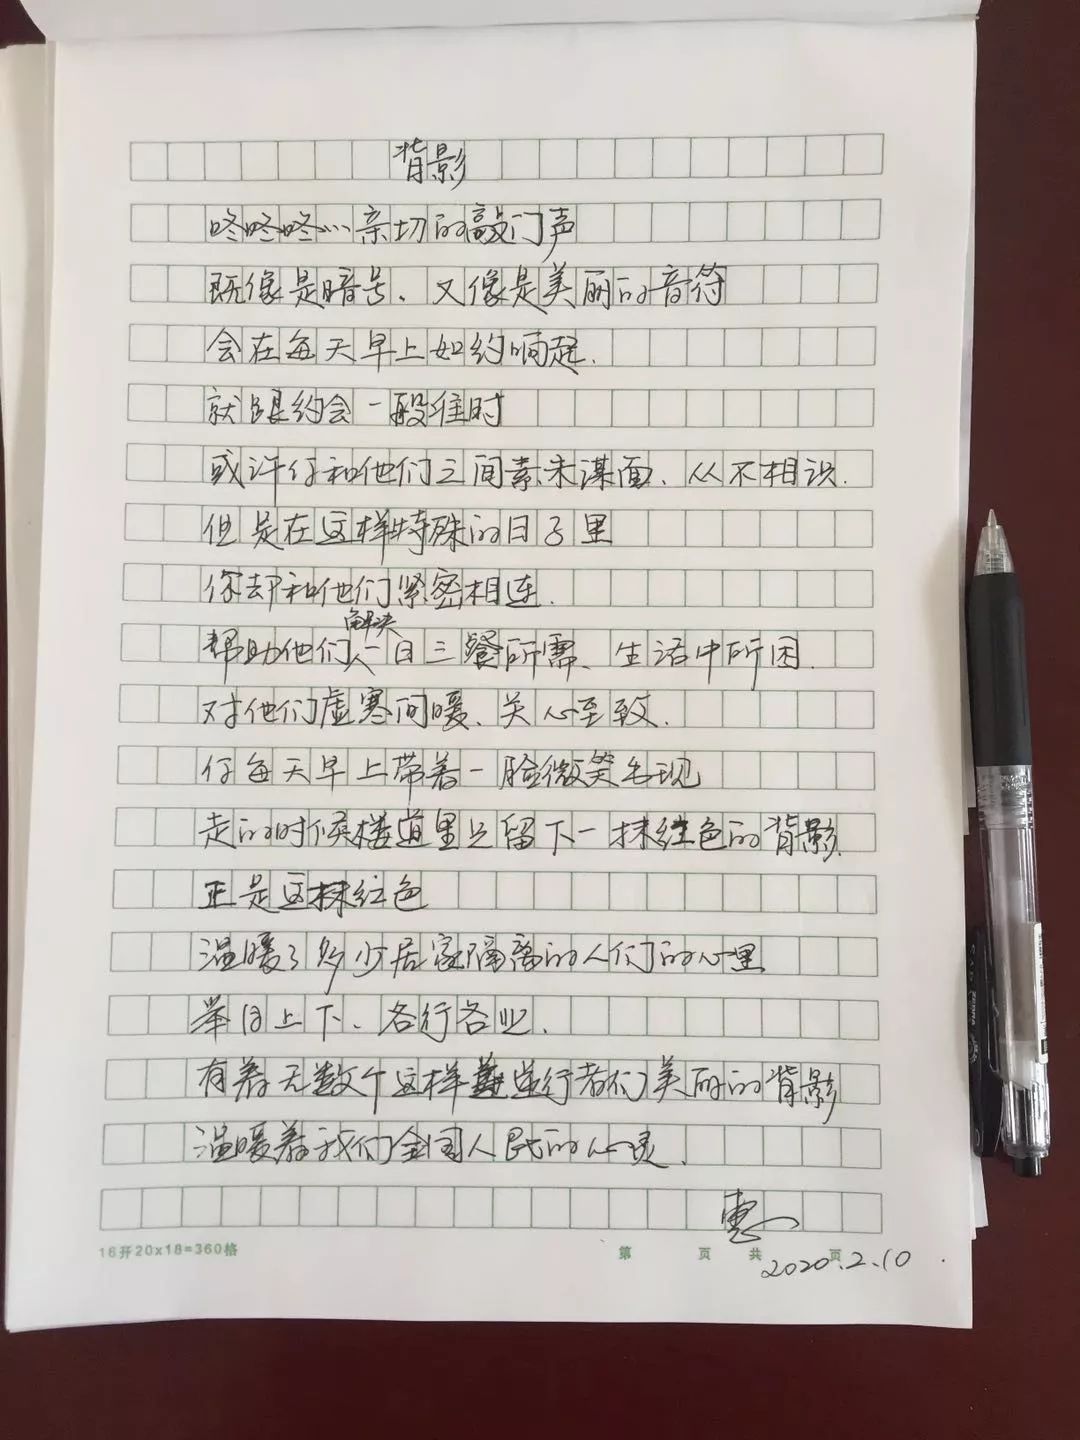 背影
咚咚咚…亲切的敲门声
既像是暗号、又像是美丽的音符
会在每天早上如约响起.
就跟约会一般准时
或许你和他们之间素未谋面、从不相识.
但是在这样特殊的日子里
你却和他们紧密相连.
解决
帮助他们一日三餐所需、生活中所困.
对他们虚寒问暖、关心至致.
你每天早上带着一脸微笑出现
走的时候楼道里只留下一抹红色的背影.
正是这抹红色
温暖了多少居家隔离的人们的心里
举目上下、各行各业.
有着无数个这样逆行者们美丽的背影
温暖着我们全国人民的心灵.
惠
16开20x18=360格 第 页 共 页
2020.2.10
ZEBRA